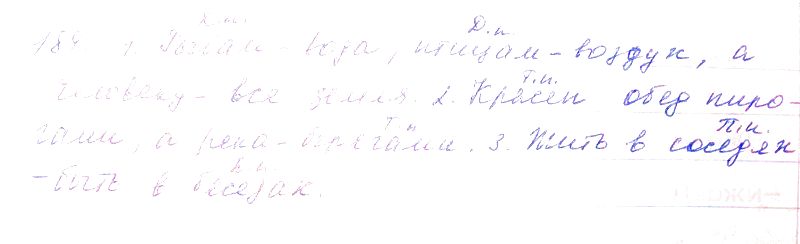 Д.п. Д.п.
184. 1. Рыбам - вода, птицам - воздух, а
Т.п.
человеку - вся земля. 2. Красен обед пиро-
Т.п. П.п.
гами, а река - берегами. 3. Жить в соседях
П.п.
- быть в беседах.